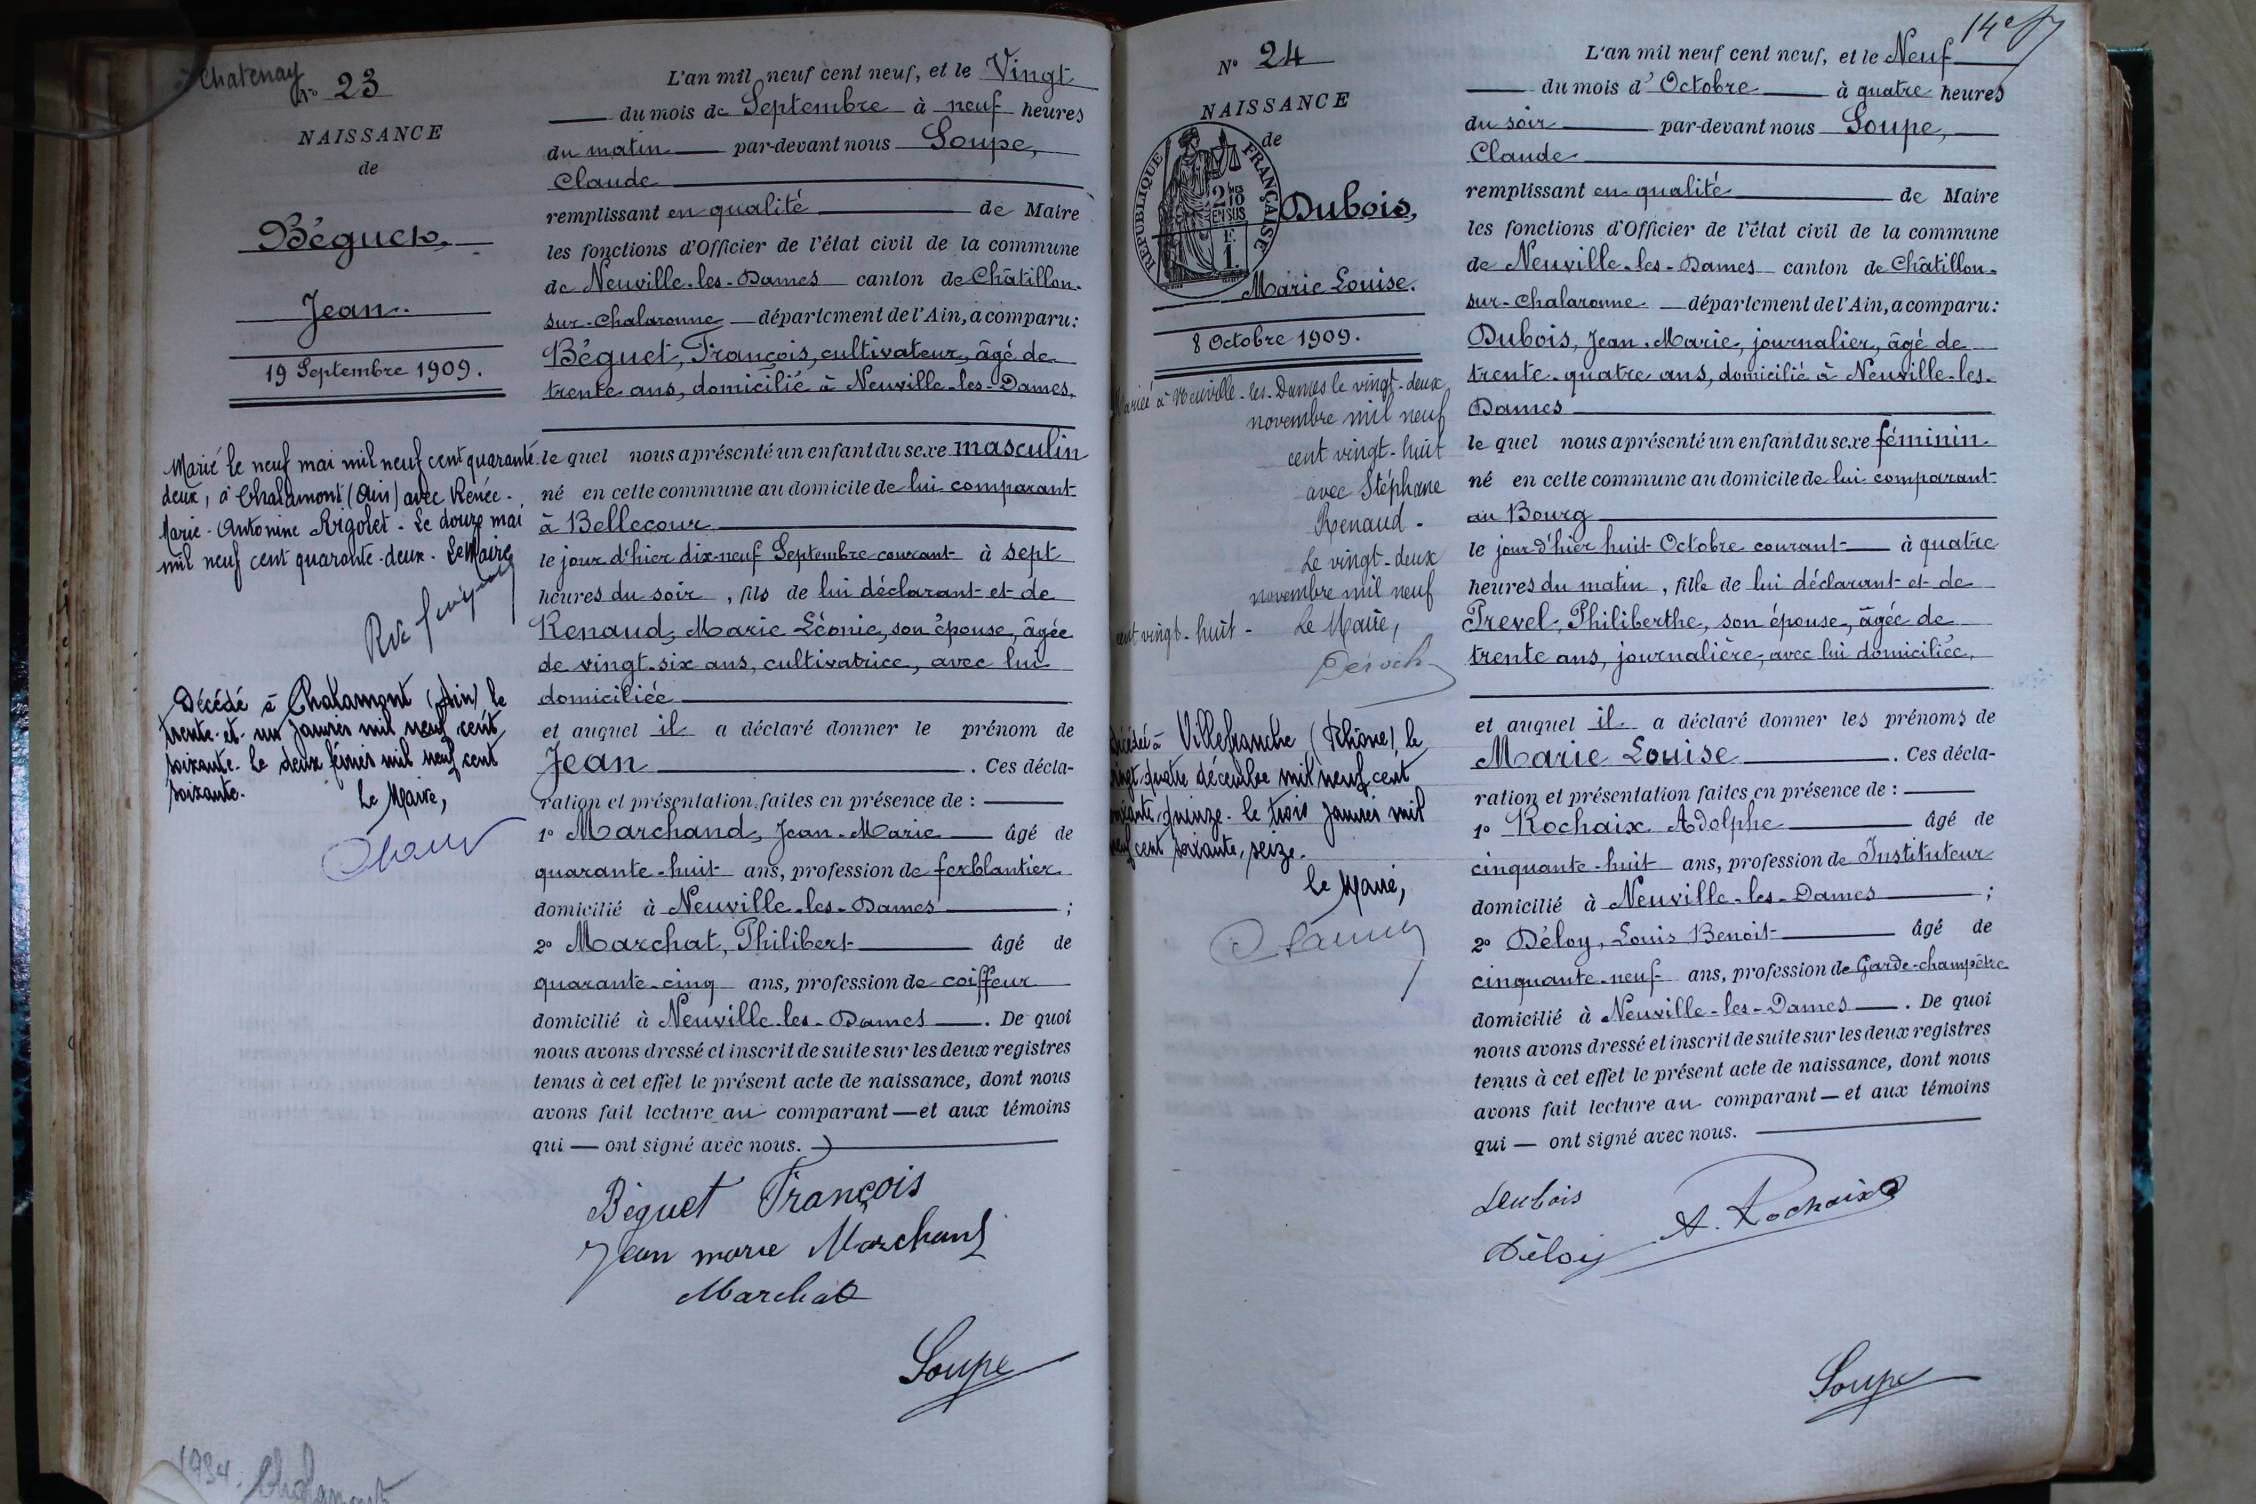 Chatenay
N° 23
NAISSANCE
de
Béguet,
Jean.
19 Septembre 1909.
Marié le neuf mai mil neuf cent quarante-
deux, à Chalamont (Ain) avec Renée-
Marie-Antonine Rigolet - Le douze mai
mil neuf cent quarante-deux. Le Maire
Décédé à Chalamont (Ain) le
trente-et-un janvier mil neuf cent
soixante. le deux février mil neuf cent
soixante.
Le Maire,
1934. Chalamont
L'an mil neuf cent neuf, et le Vingt
du mois de Septembre à neuf heures
du matin par-devant nous Soupe,
Claude
remplissant en qualité de Maire
les fonctions d'Officier de l'état civil de la commune
de Neuville-les-Dames canton de Châtillon-
sur-Chalaronne département de l'Ain, a comparu:
Béguet, François, cultivateur, âgé de
trente ans, domicilié à Neuville-les-Dames,
le quel nous a présenté un enfant du sexe masculin
né en cette commune au domicile de lui comparant
à Bellecour
le jour d'hier dix-neuf Septembre courant à sept
heures du soir, fils de lui déclarant et de
Renaud, Marie Léonie, son épouse, âgée
de vingt-six ans, cultivatrice, avec lui
domiciliée
et auquel il a déclaré donner le prénom de
Jean. Ces décla-
ration et présentation faites en présence de :
1° Marchand, Jean-Marie âgé de
quarante-huit ans, profession de ferblantier
domicilié à Neuville-les-Dames ;
2° Marchat, Philibert âgé de
quarante-cinq ans, profession de coiffeur
domicilié à Neuville-les-Dames. De quoi
nous avons dressé et inscrit de suite sur les deux registres
tenus à cet effet le présent acte de naissance, dont nous
avons fait lecture au comparant — et aux témoins
qui — ont signé avec nous.
Béguet François
Jean marie Marchand
Marchat
Soupe
14e
N° 24
NAISSANCE
de
RÉPUBLIQUE FRANÇAISE
2/10
EN SUS
E.
1.
Dubois,
Marie Louise.
8 Octobre 1909.
Mariée à Neuville-les-Dames le vingt-deux
novembre mil neuf
cent vingt-huit
avec Stéphane
Renaud -
Le vingt-deux
novembre mil neuf
cent vingt-huit - Le Maire,
Décédée à Villefranche (Rhône) le
vingt-quatre décembre mil neuf cent
soixante-quinze. le trois janvier mil
neuf cent soixante-seize.
le Maire,
L'an mil neuf cent neuf, et le Neuf
du mois d'Octobre à quatre heures
du soir par-devant nous Soupe,
Claude
remplissant en qualité de Maire
les fonctions d'Officier de l'état civil de la commune
de Neuville-les-Dames canton de Châtillon-
sur-Chalaronne département de l'Ain, a comparu:
Dubois, Jean-Marie, journalier, âgé de
trente-quatre ans, domicilié à Neuville-les-
Dames
le quel nous a présenté un enfant du sexe féminin
né en cette commune au domicile de lui comparant
au Bourg
le jour d'hier huit Octobre courant à quatre
heures du matin, fille de lui déclarant et de
Prevel, Philiberthe, son épouse, âgée de
trente ans, journalière, avec lui domiciliée,
et auquel il a déclaré donner les prénoms de
Marie Louise. Ces décla-
ration et présentation faites en présence de :
1° Rochaix Adolphe âgé de
cinquante-huit ans, profession de Instituteur
domicilié à Neuville-les-Dames ;
2° Déloy, Louis Benoit âgé de
cinquante-neuf ans, profession de Garde-champêtre
domicilié à Neuville-les-Dames. De quoi
nous avons dressé et inscrit de suite sur les deux registres
tenus à cet effet le présent acte de naissance, dont nous
avons fait lecture au comparant — et aux témoins
qui — ont signé avec nous.
Dubois
A. Rochaix
Déloy
Soupe